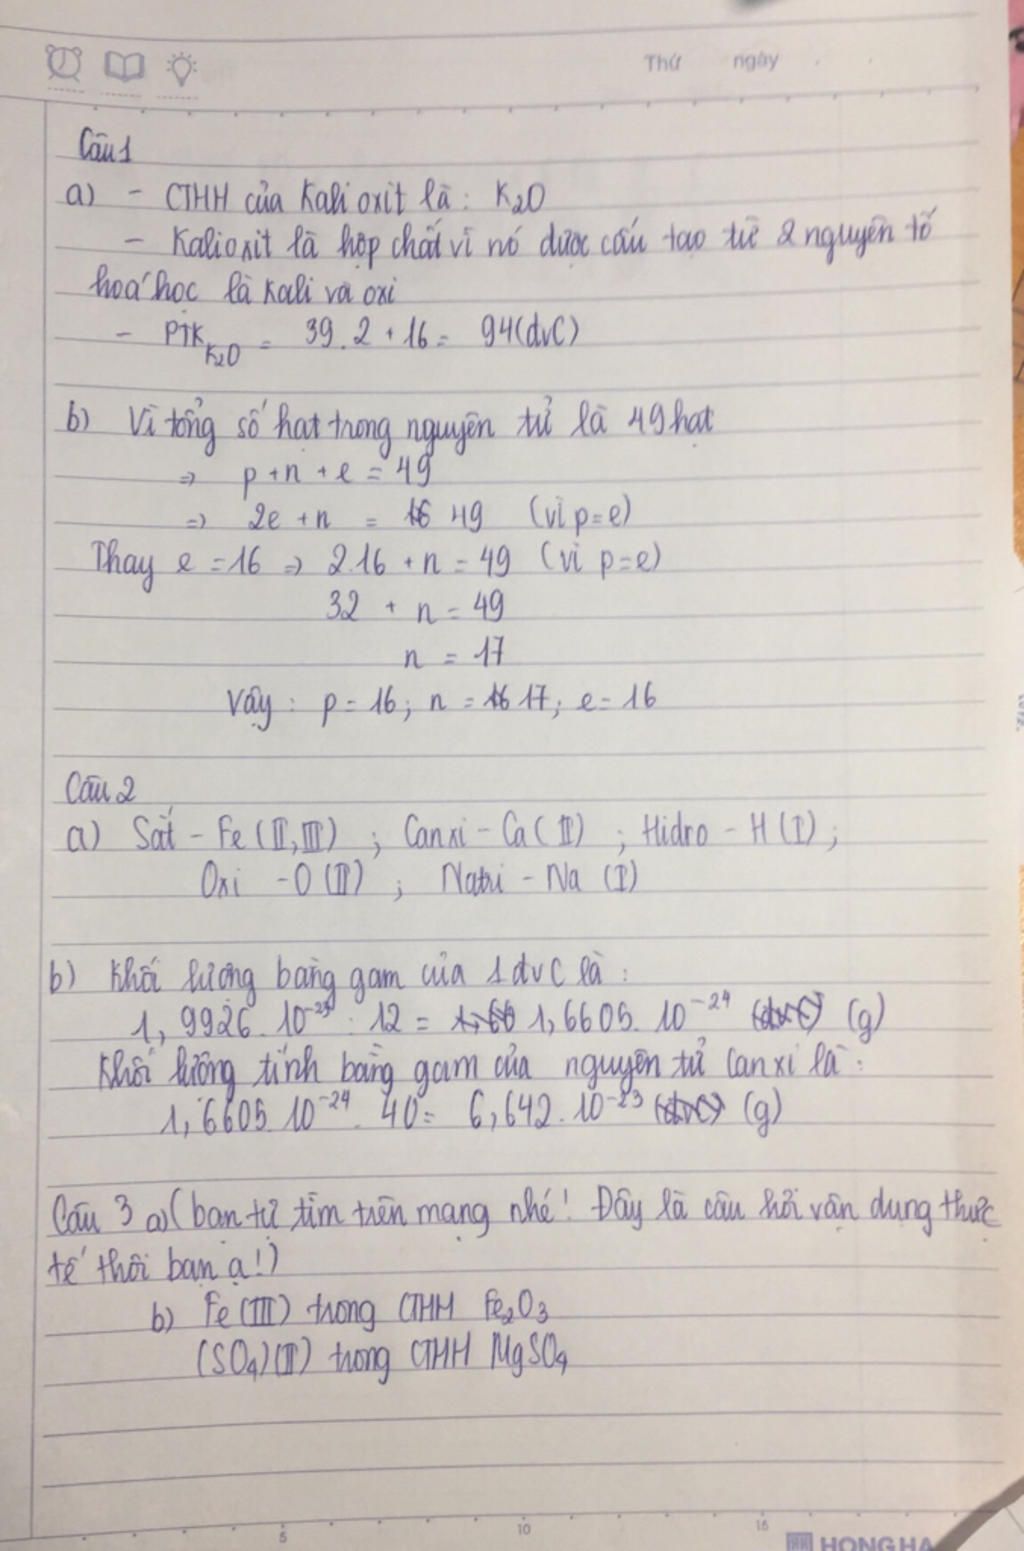 Thứ ngày
Câu 1
a) - CTHH của Kali oxit là: K₂O
- Kalioxit là hợp chất vì nó được cấu tạo từ 2 nguyên tố
hoá học là Kali và oxi
- PTK K₂O = 39.2 + 16 = 94(đvC)
b) Vì tổng số hạt trong nguyên tử là 49 hạt
⇒ p + n + e = 49
⇒ 2e + n = 49 (vì p=e)
Thay e = 16 ⇒ 2.16 + n = 49 (vì p=e)
32 + n = 49
n = 17
Vậy: p = 16; n = 17; e = 16
Câu 2
a) Sắt - Fe (II, III) ; Canxi - Ca (II) ; Hidro - H (I) ;
Oxi - O (II) ; Natri - Na (I)
b) Khối lượng bằng gam của 1 đvC là:
1,9926.10⁻²³ : 12 = 1,6605.10⁻²⁴ (g)
Khối lượng tính bằng gam của nguyên tử Canxi là:
1,6605.10⁻²⁴. 40 = 6,642.10⁻²³ (g)
Câu 3 a) (bạn tự tìm trên mạng nhé! Đây là câu hỏi vận dụng thực
tế thôi bạn ạ!)
b) Fe (III) trong CTHH Fe₂O₃
(SO₄)(II) trong CTHH MgSO₄
5 10 15
HONG HA